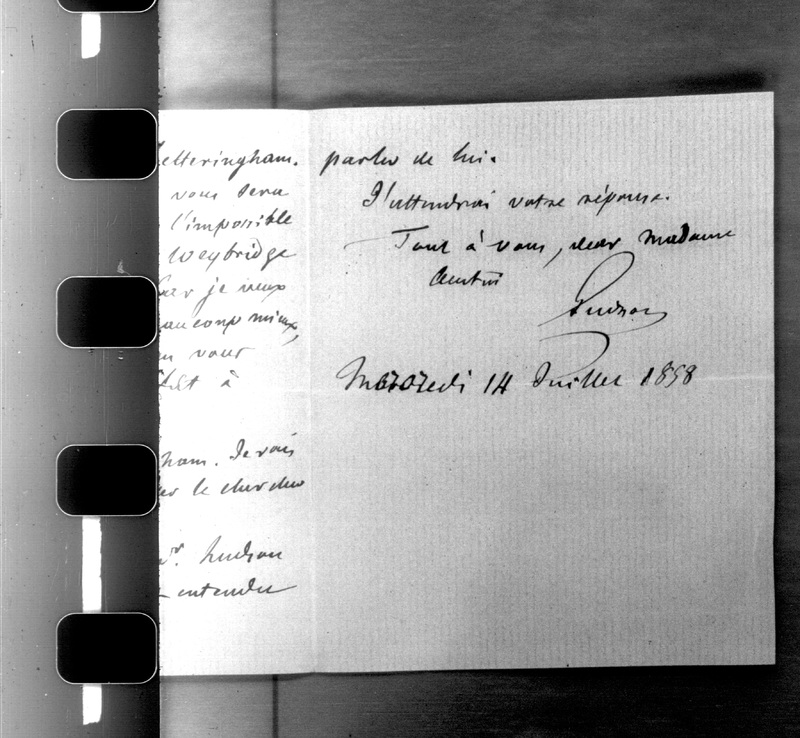 etteringham.
vous sera
l'impossible
Weybridge
Car je veux
aucoup mieux,
vous
à
ham. Je vais
er le chercher
Mr. Hudson
entendre
parler de lui.
J'attendrai votre réponse.
Tout à vous, dear Madame
Austin
Mercredi 14 Juillet 1858